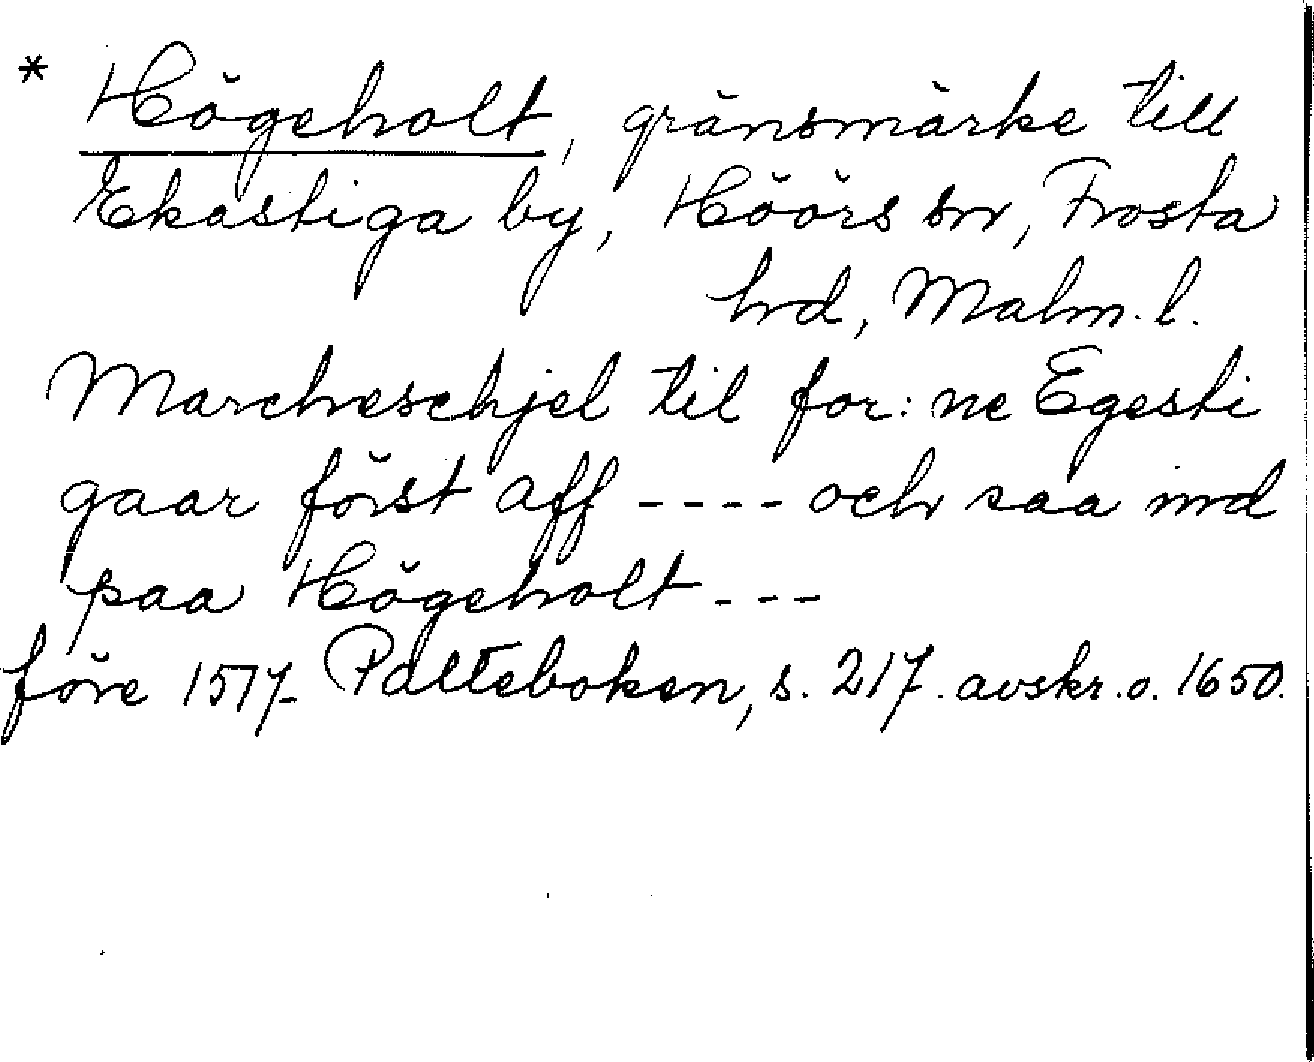 * Högeholt, gränsmärke till
Ekastiga by, Höörs sn, Frosta
hd, Malm. l.
Marcheschjel til for: ne Egesti
gaar först aff ---- och saa ind
paa Högeholt ---
före 1577 Palteboken, s. 217. avskr. o. 1650.